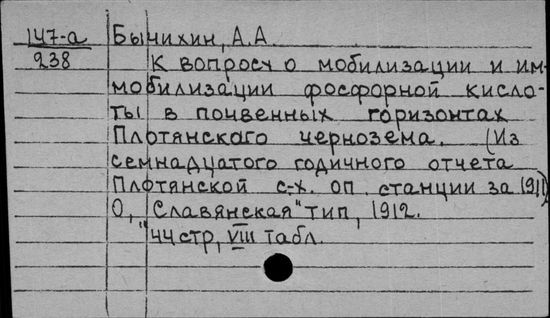 147-а Бычихин, А.А.
238 К вопросу о мобилизации и им-
мобилизации фосфорной кисло-
ты в почвенных горизонтах
Плотянского чернозема. (Из
семнадцатого годичного отчета
Плотянской с.-х. оп. станции за 1911)
О, "Славянская" тип, 1912.
44 стр, VIII табл.